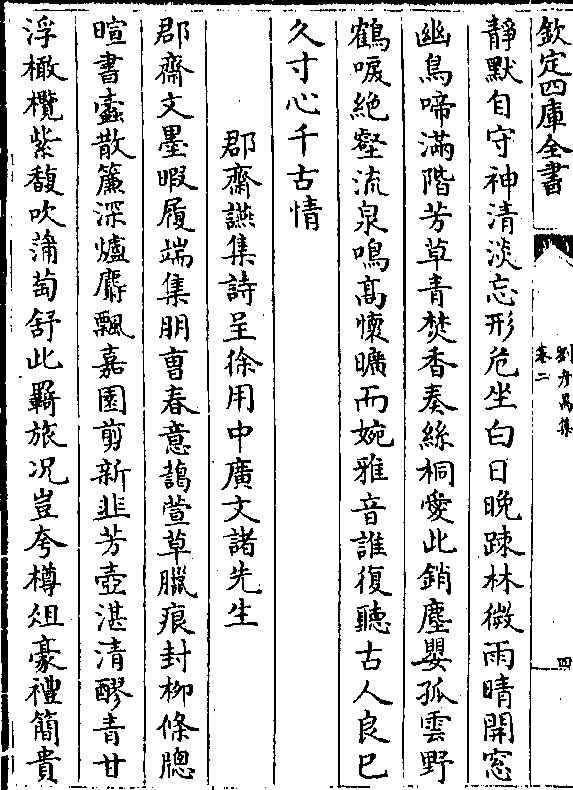 欽定四庫全書
劉彥昺集
卷二
四
靜默自守神清淡忘形危坐白日晚踈林微雨晴開窓
幽鳥啼滿階芳草青焚香奏絲桐愛此銷塵嬰孤雲野
鶴唳絶壑流泉鳴髙懷曠而婉雅音誰復聽古人良已
久寸心千古情
郡齋讌集詩呈徐用中廣文諸先生
郡齋文墨暇履端集朋曺春意䕶萱草臘痕封柳條牕
暄書蠧散簾深爐麝飄嘉園剪新韭芳壺湛清醪青甘
浮橄欖紫馥吹蒲萄舒此羇旅况豈夸樽俎豪禮簡貴